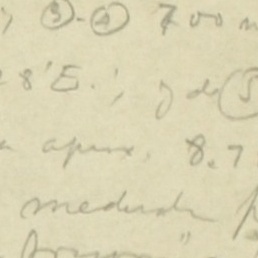 ; ③-④ 700 m
28'E.; y de ⑤
a aprox. 8.7
medida p